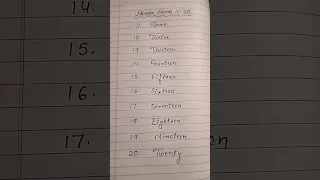 14.
15.
16.
17.
11 Eleven
12 Twelve
13 Thirteen
14 Fourteen
15 Fifteen
16 Sixteen
17 Seventeen
18 Eighteen
19 Nineteen
20 Twenty